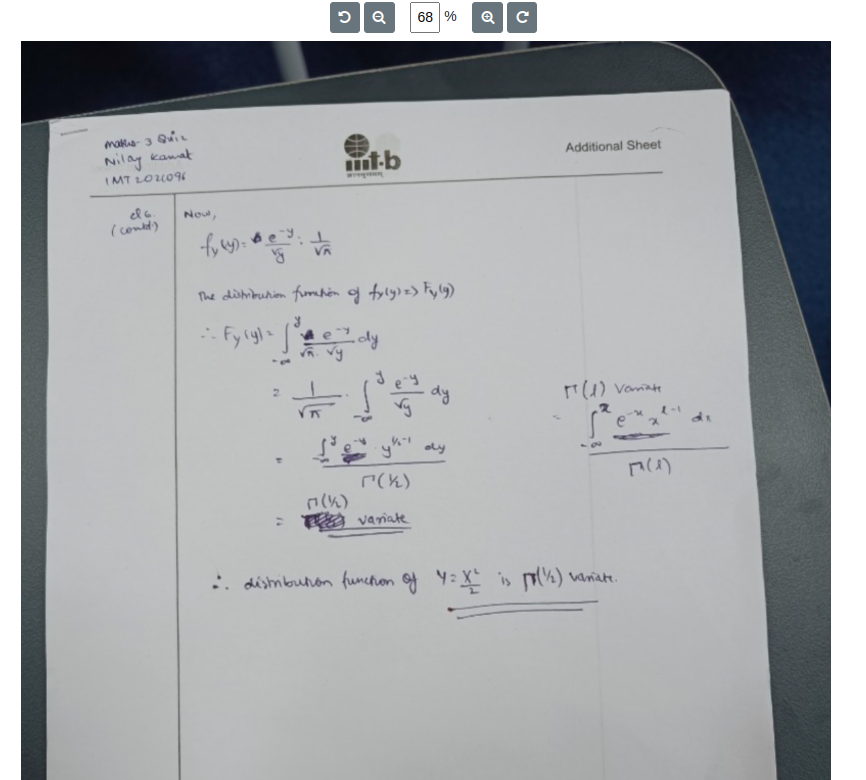 68 %
Maths-3 Quiz
Nilay Kamat
IMT2021096
iiit-b
Additional Sheet
(contd)
Now,
fy(y) = e^-y/√y · 1/√π
The distribution function of fy(y) => Fy(y)
∴ Fy(y) = ∫_-∞^y e^-y/(√π · √y) dy
= 1/√π · ∫_-∞^y e^-y/√y dy
= ∫_-∞^y e^-y · y^(1/2-1) dy / Γ(1/2)
= Γ(1/2) variate
Γ(l) variate
= ∫_-∞^x e^-x x^(l-1) dx / Γ(l)
∴ distribution function of Y = X²/2 is Γ(1/2) variate.